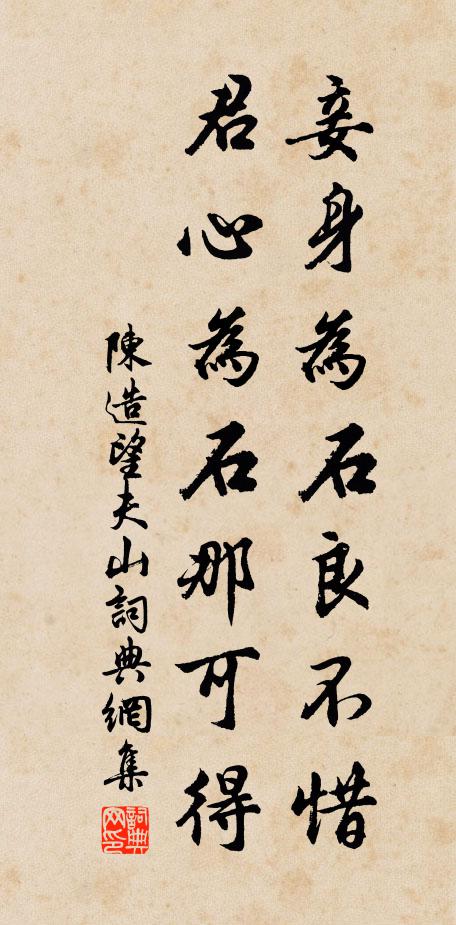 妾身為石良不惜
君心為石那可得
陳造望夫山詞典網集
詞典网印